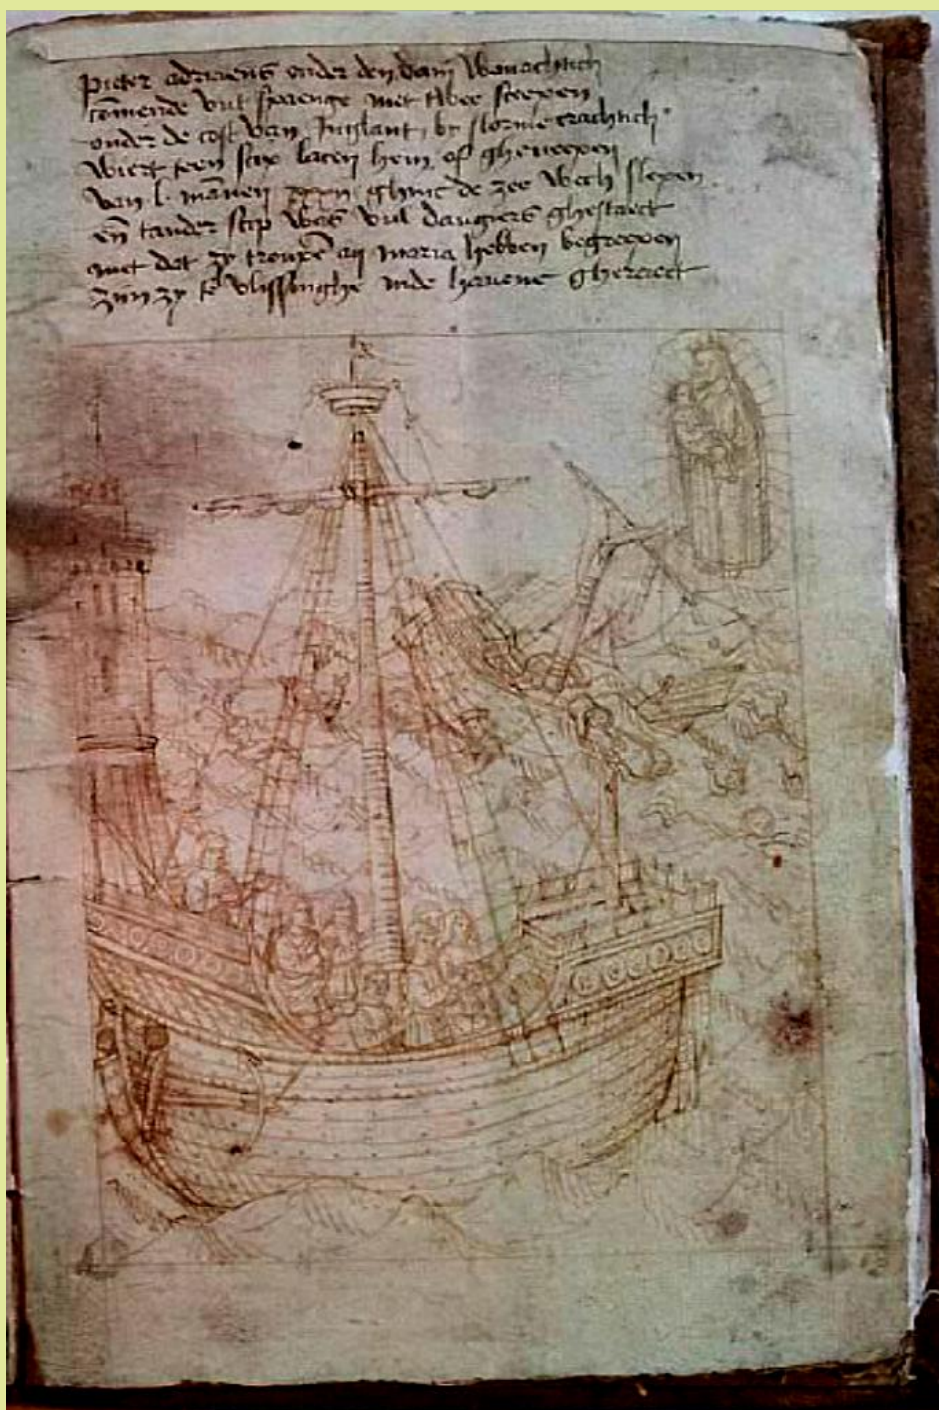 pieter adriaens onder den dam wonachtich
comende vut spaenge met twee scepen
onder de cost van Inglant by storme crachtich
wiert teen scip laten hem of gheneepen
van l. mannen ghinc de zee wech slepen
en tander scip was vul dangiers ghestaect
met dat zy troupe an maria hebben begreepen
zijn zy te vlissinghe inde havene gheraect